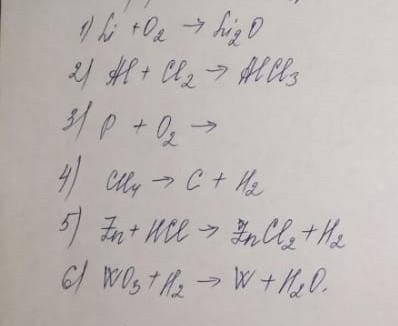 1) Li + O₂ → Li₂O
2) Al + Cl₂ → AlCl₃
3) P + O₂ →
4) CH₄ → C + H₂
5) Zn + HCl → ZnCl₂ + H₂
6) WO₃ + H₂ → W + H₂O.